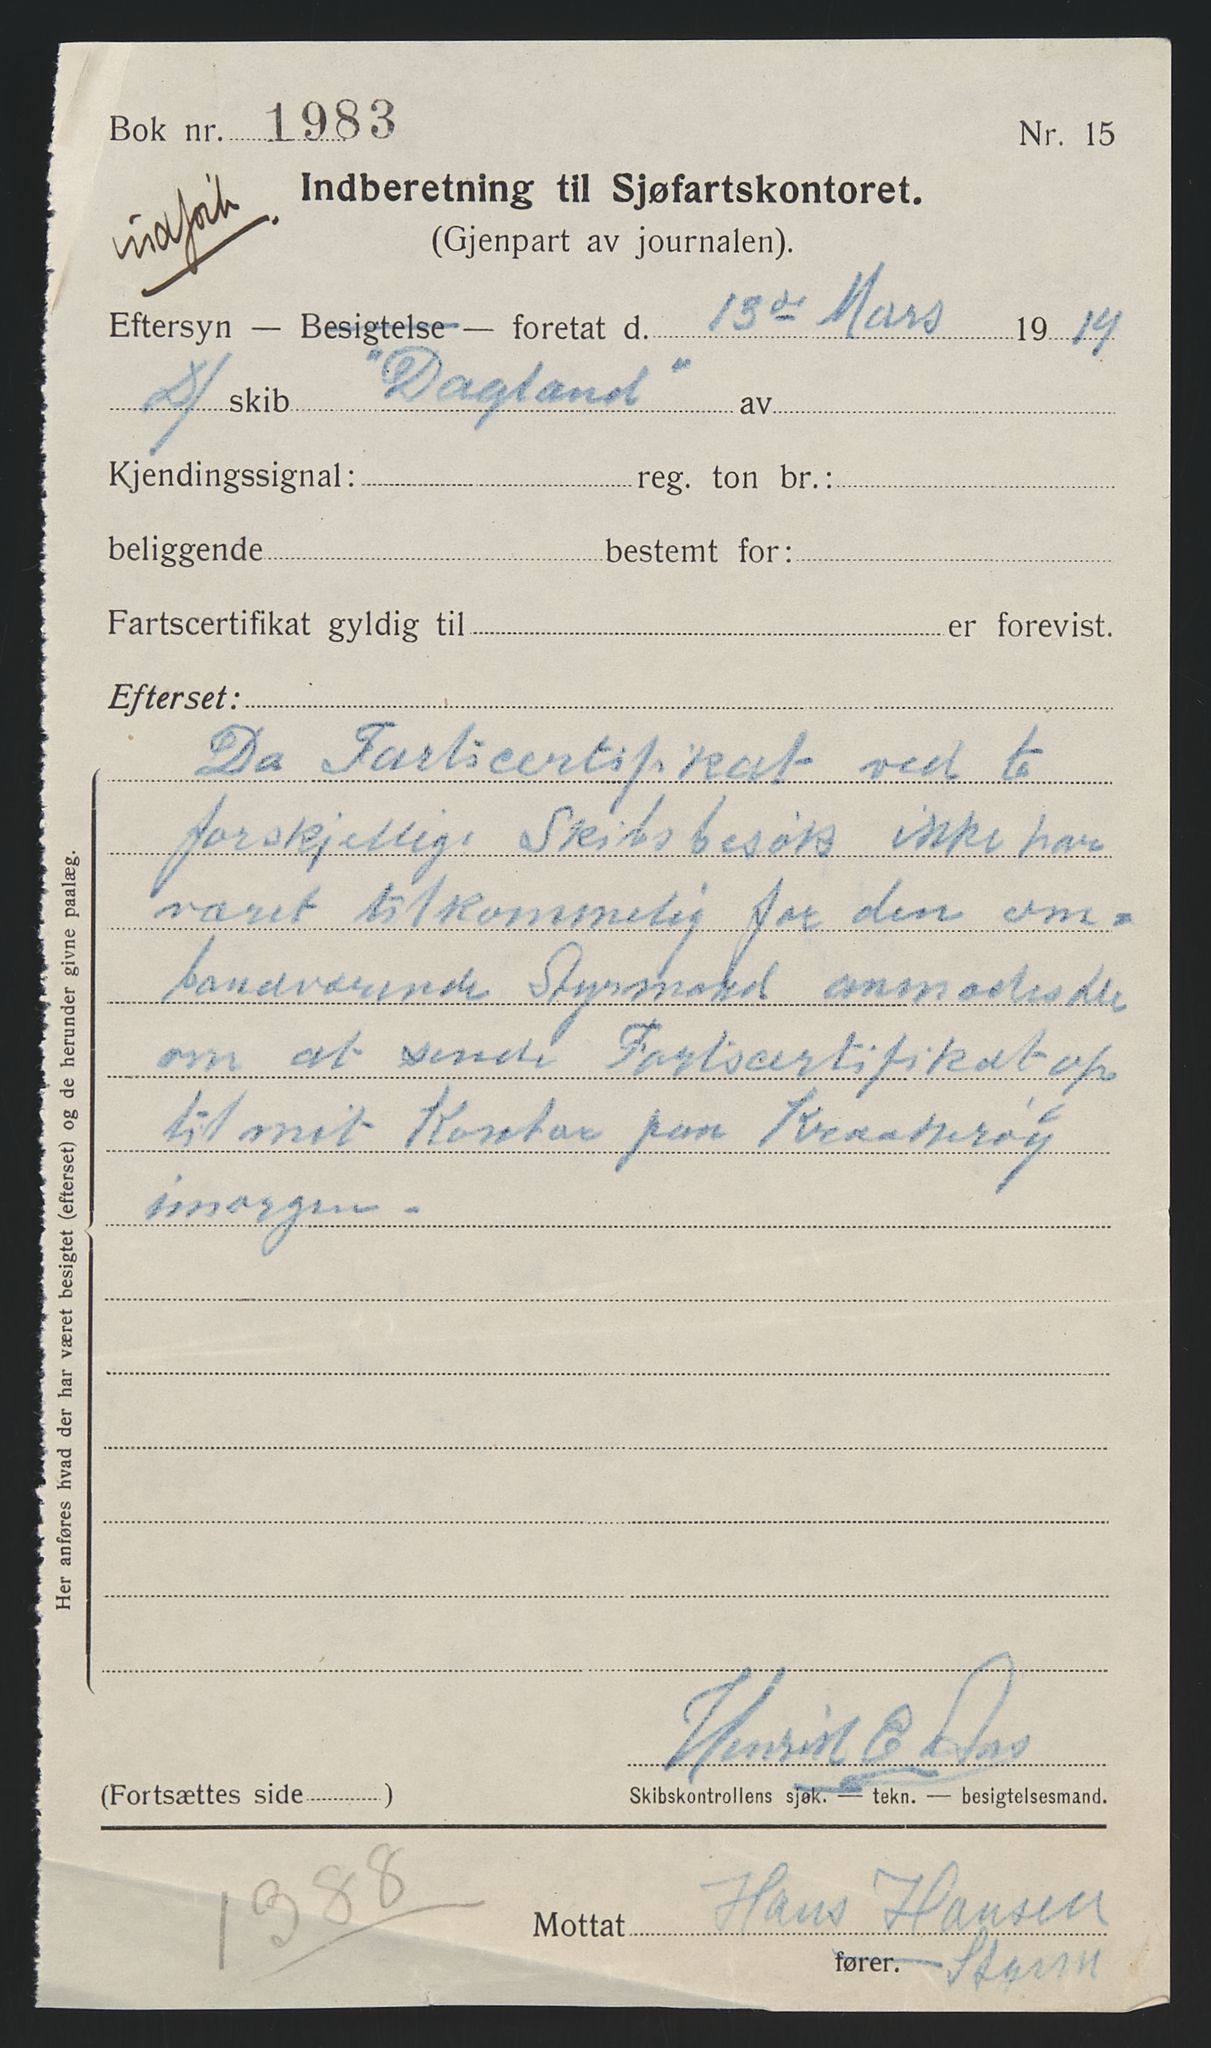 Bok nr. 1983 Nr. 15
Indberetning til Sjøfartskontoret.
(Gjenpart av journalen).
indført
Eftersyn — Besigtelse — foretat d. 13de Mars 1914
D/ skib "Dagland" av
Kjendingssignal: reg. ton br.:
beliggende bestemt for:
Fartscertifikat gyldig til er forevist.
Efterset:
Da Fartscertifikat ved to
forskjellige Skibsbesøk ikke har
været tilkommelig for den om-
bordværende Styrmand anmodes
om at sende Fartscertifikat op
til mit Kontor paa Kraakerøy
imorgen.
Her anføres hvad der har været besigtet (efterset) og de herunder givne paalæg.
Henrik E
(Fortsættes side )
Skibskontrollens sjøk. — tekn. — besigtelsesmand.
1988
Mottat Hans Hansen
fører. Styrm